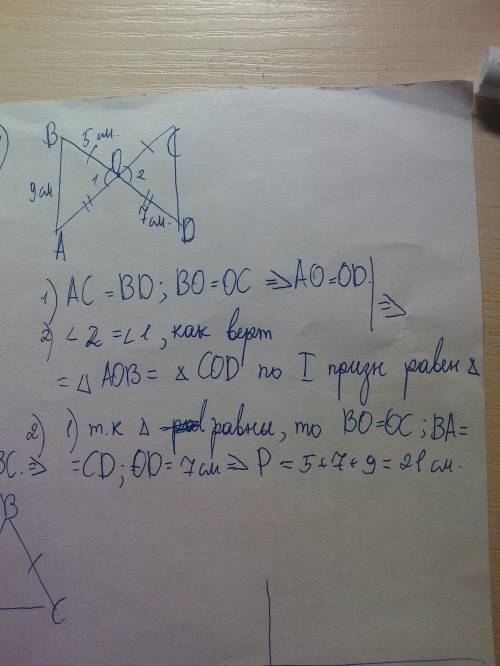 B 5 см. C
O
1 2
9 см
7 см.
A D
1) AC = BD ; BO = OC ⇒ AO = OD. | ⇒
2) ∠2 = ∠1, как верт
= △ AOB = △ COD по I призн равен △
2) 1) т.к △ равны, то BO = OC ; BA =
BC. ⇒ = CD ; OD = 7 см ⇒ P = 5 + 7 + 9 = 21 см.
B
C